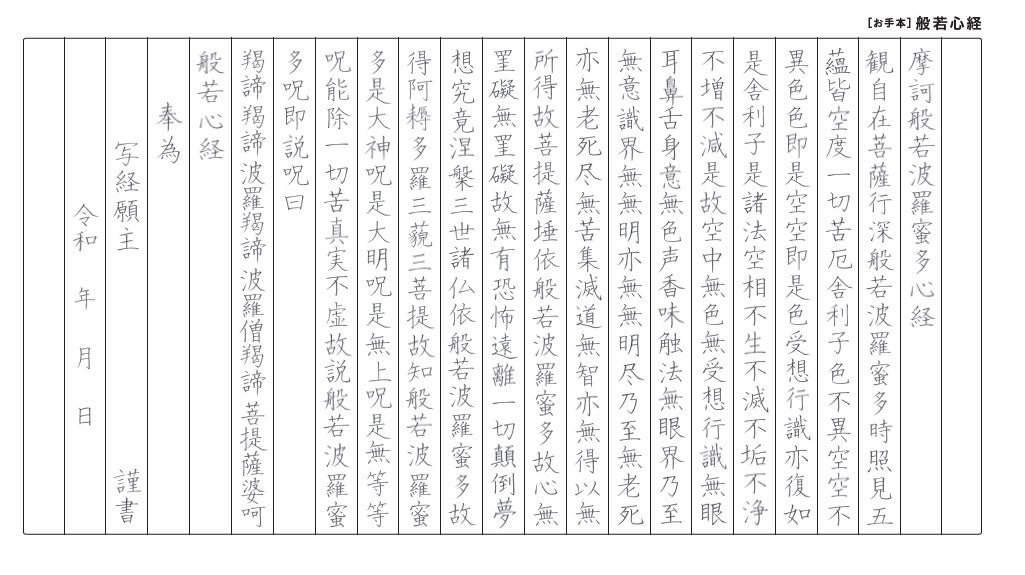 [お手本] 般若心経
摩訶般若波羅蜜多心経
観自在菩薩行深般若波羅蜜多時照見五
蘊皆空度一切苦厄舎利子色不異空空不
異色色即是空空即是色受想行識亦復如
是舎利子是諸法空相不生不滅不垢不浄
不増不減是故空中無色無受想行識無眼
耳鼻舌身意無色声香味触法無眼界乃至
無意識界無無明亦無無明尽乃至無老死
亦無老死尽無苦集滅道無智亦無得以無
所得故菩提薩埵依般若波羅蜜多故心無
罣礙無罣礙故無有恐怖遠離一切顛倒夢
想究竟涅槃三世諸仏依般若波羅蜜多故
得阿耨多羅三藐三菩提故知般若波羅蜜
多是大神呪是大明呪是無上呪是無等等
呪能除一切苦真実不虚故説般若波羅蜜
多呪即説呪曰
羯諦 羯諦 波羅羯諦 波羅僧羯諦 菩提薩婆呵
般若心経
奉為
写経願主 謹書
令和 年 月 日